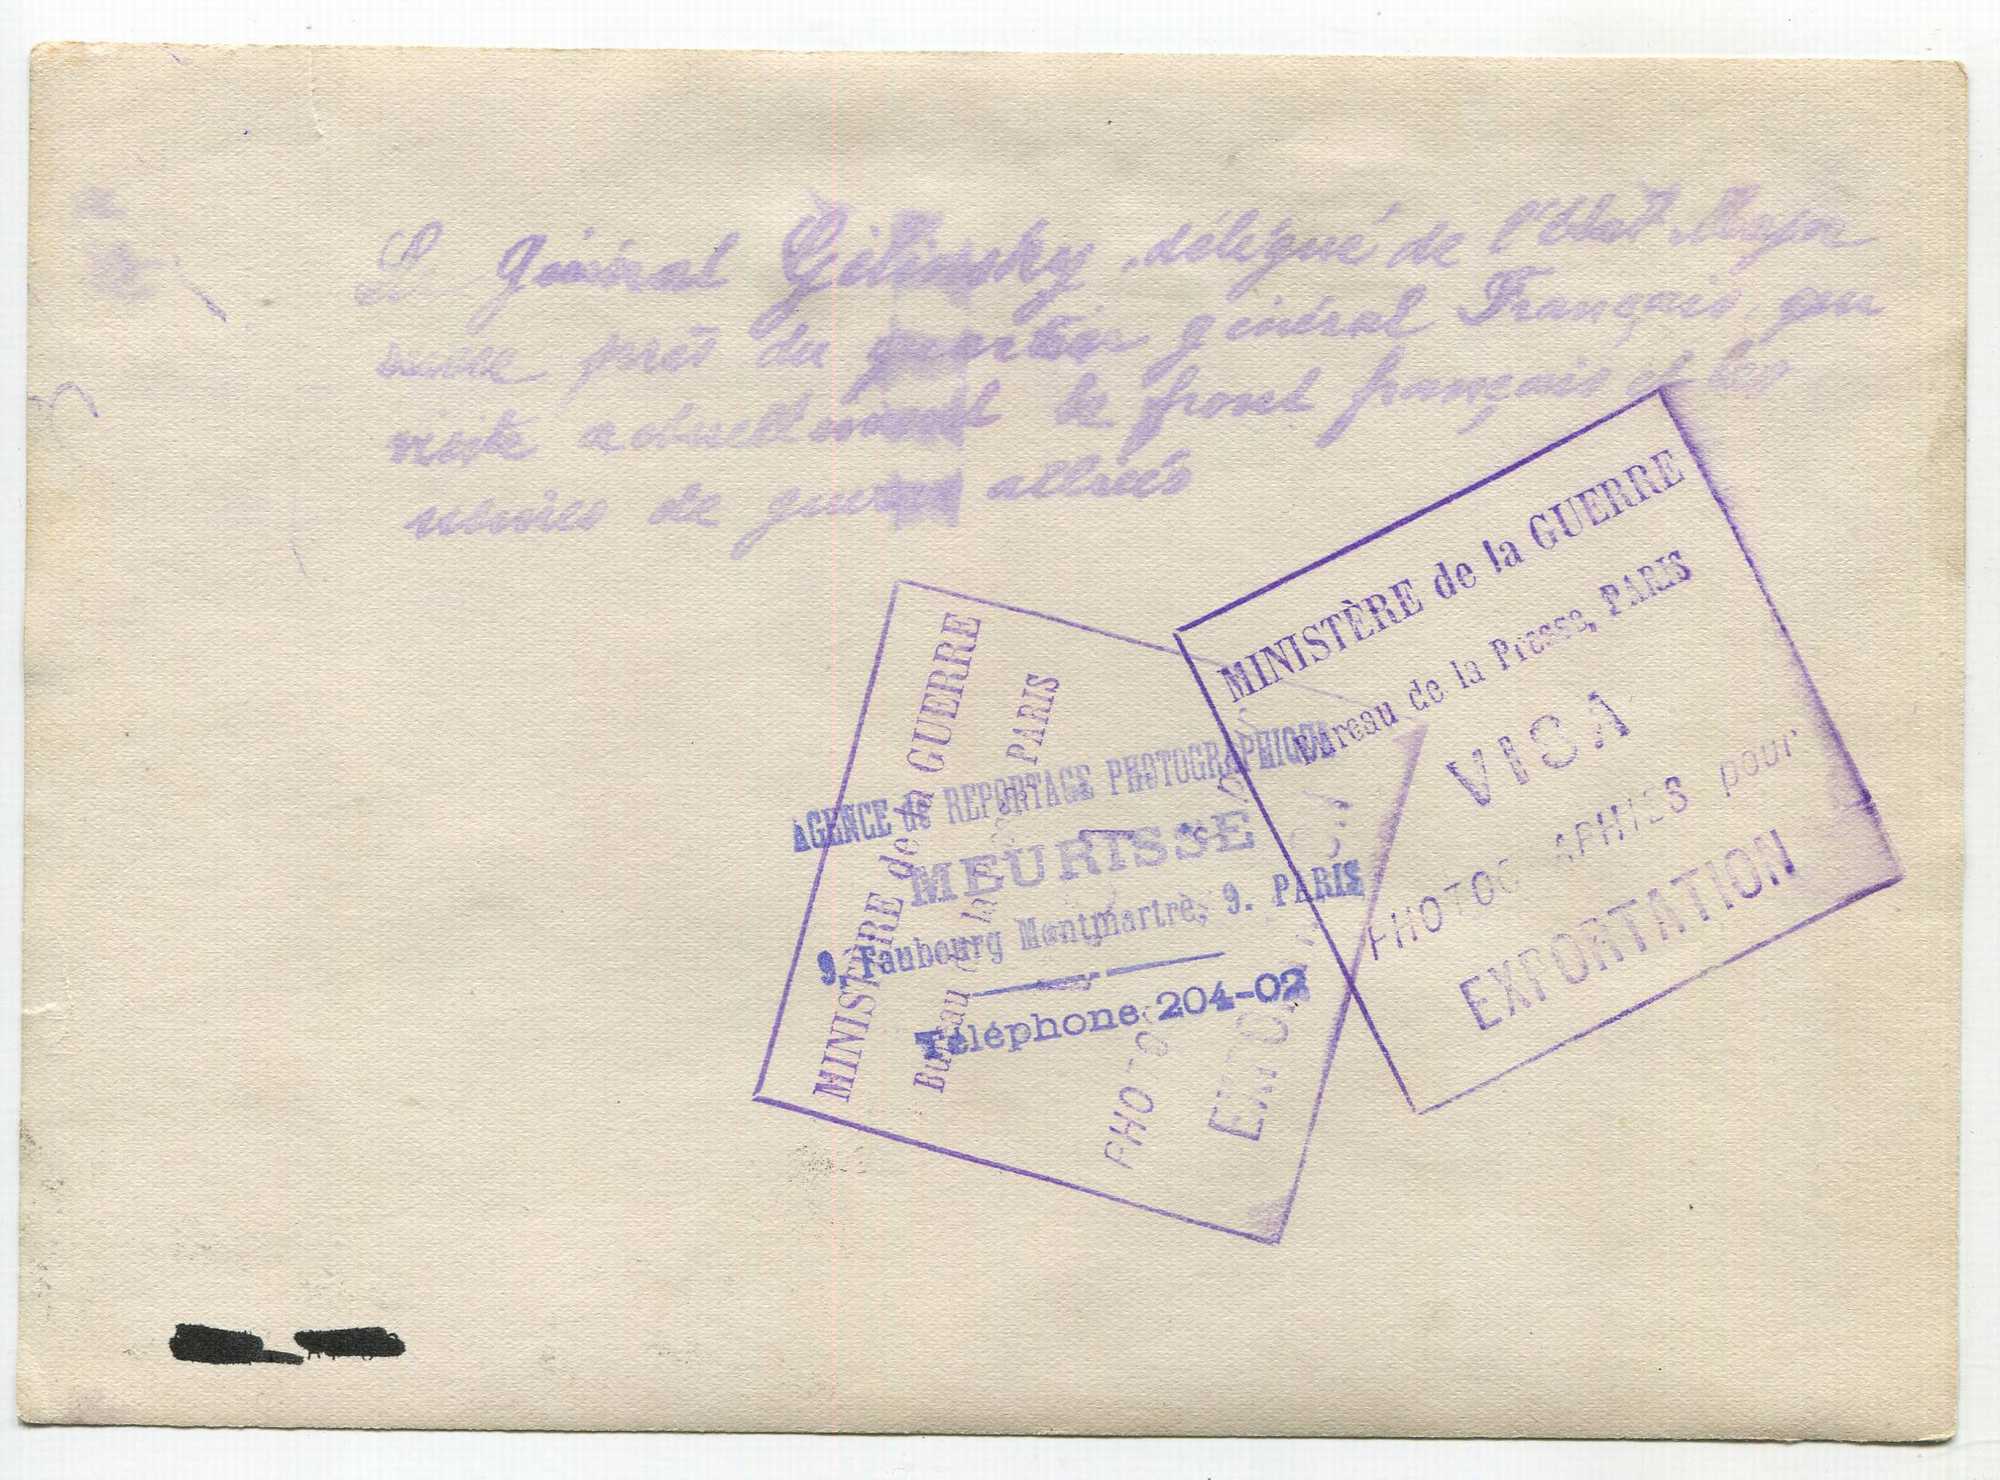 Le Général Gilinsky, délégué de l'Etat Major
russe près du quartier général Français, qui
visite actuellement le front français et les
usines de guerre alliées
MINISTÈRE de la GUERRE
Bureau de la Presse, PARIS
VISA
PHOTOGRAPHIES pour
EXPORTATION
AGENCE de REPORTAGE PHOTOGRAPHIQUE
MEURISSE
9, Faubourg Montmartre, 9. PARIS
Téléphone 204-02
MINISTÈRE de la GUERRE
Bureau de la Presse, PARIS